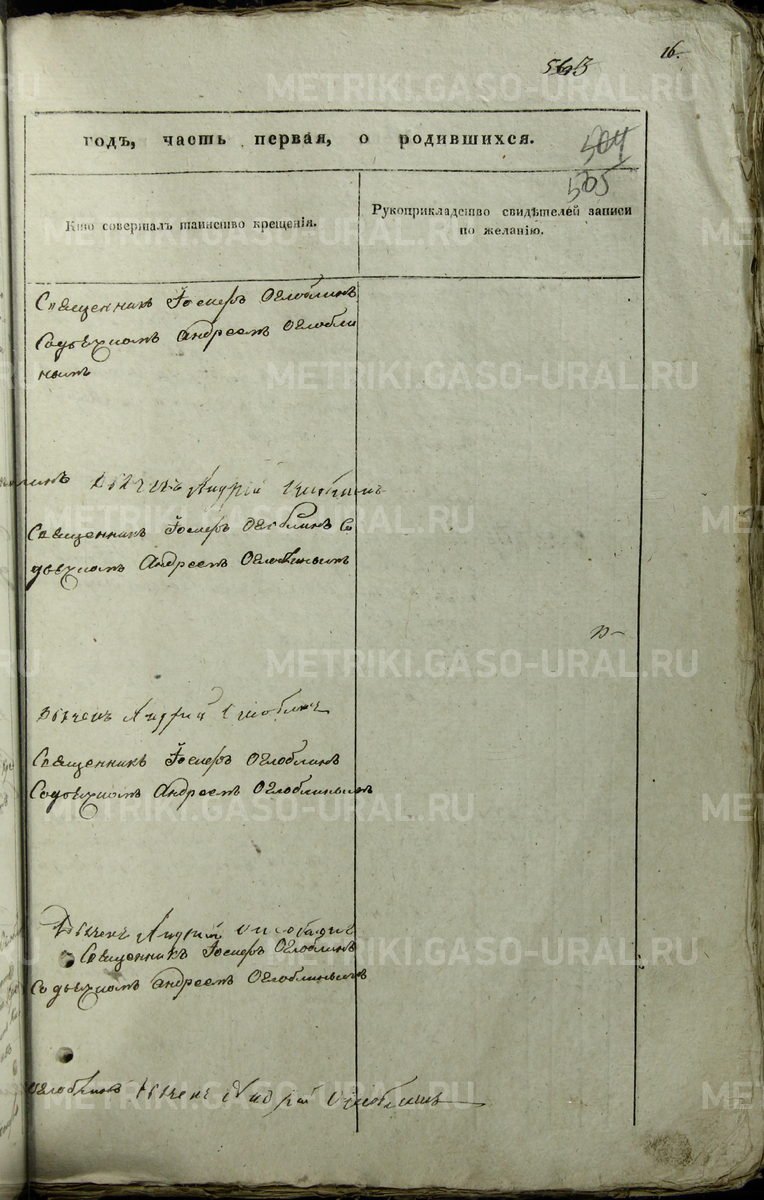 16.
563
504
505
годъ, часть первая, о родившихся.
Кто совершалъ таинство крещенія.
Рукоприкладство свидѣтелей записи
по желанію.
Священникъ Іосифъ Оглоблинъ
Содьячкомъ Андреемъ Оглобли
нымъ
дьячекъ Андрей Оглоблинъ
Священникъ Іосифъ Оглоблинъ Со
дьячкомъ Андреемъ Оглоблинымъ
дьячекъ Андрей Оглоблинъ
Священникъ Іосифъ Оглоблинъ
Содьячкомъ Андреемъ Оглоблинымъ
Дьячекъ Андрей Оглоблинъ
Священникъ Іосифъ Оглоблинъ
Со дьячкомъ Андреемъ Оглоблинымъ
Оглоблинъ дьячекъ Андрей Оглоблинъ
METRIKI.GASO-URAL.RU